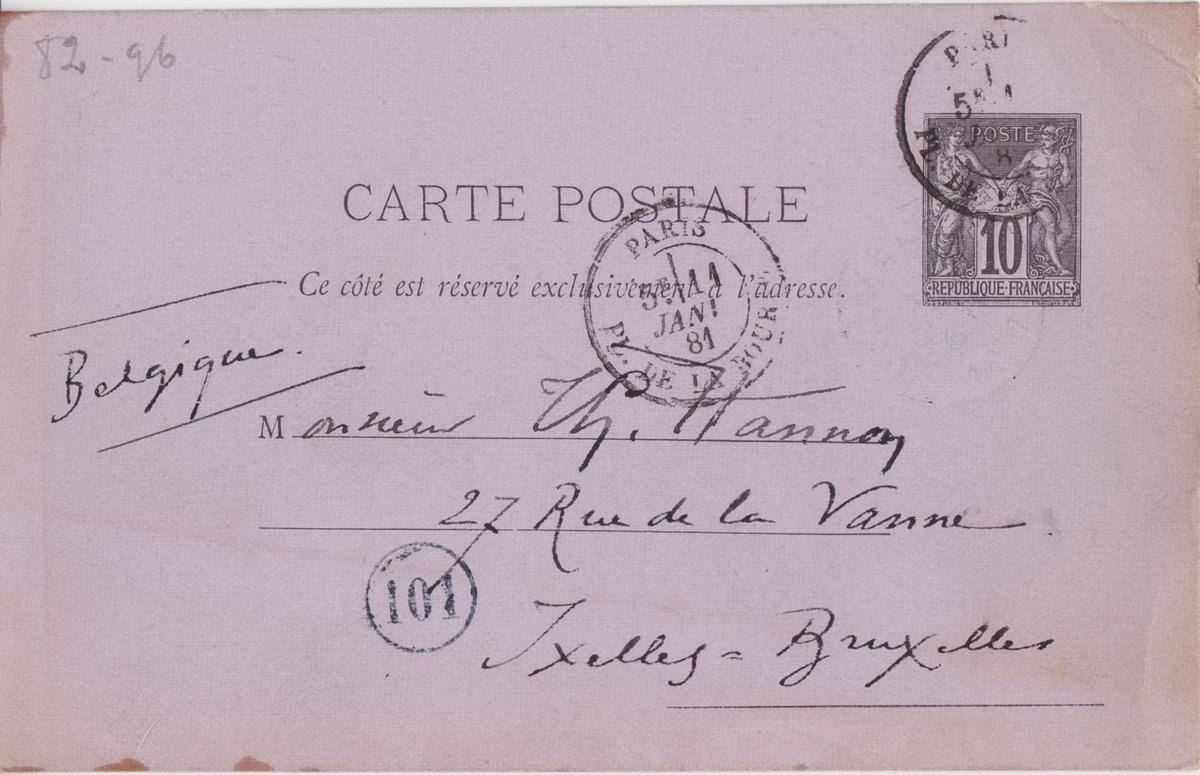 82-96
PARI
1
5E
PL. DE LA
POSTE
10
REPUBLIQUE·FRANÇAISE
CARTE POSTALE
Ce côté est réservé exclusivement à l'adresse.
PARIS
1
JANV
81
PL. DE LA BOURSE
Belgique.
Monsieur Th. Hannon
27 Rue de la Vanne
101
Ixelles = Bruxelles